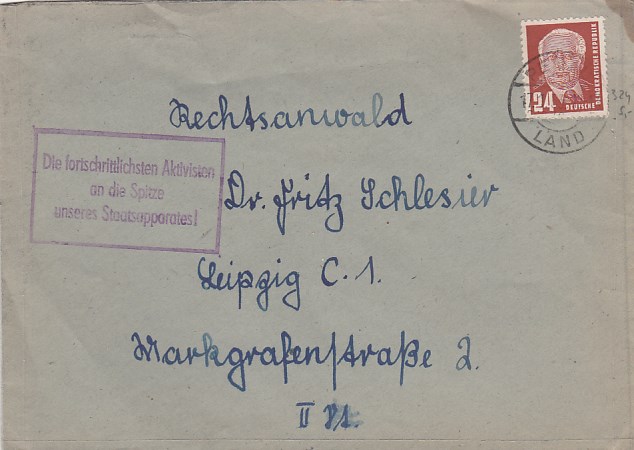 24
DEUTSCHE
DEMOKRATISCHE REPUBLIK
LAND
324
Rechtsanwald
Die fortschrittlichsten Aktivisten
an die Spitze
unseres Staatsapparates!
Dr. Fritz Schlesier
Leipzig C. 1.
Markgrafenstraße 2.
II